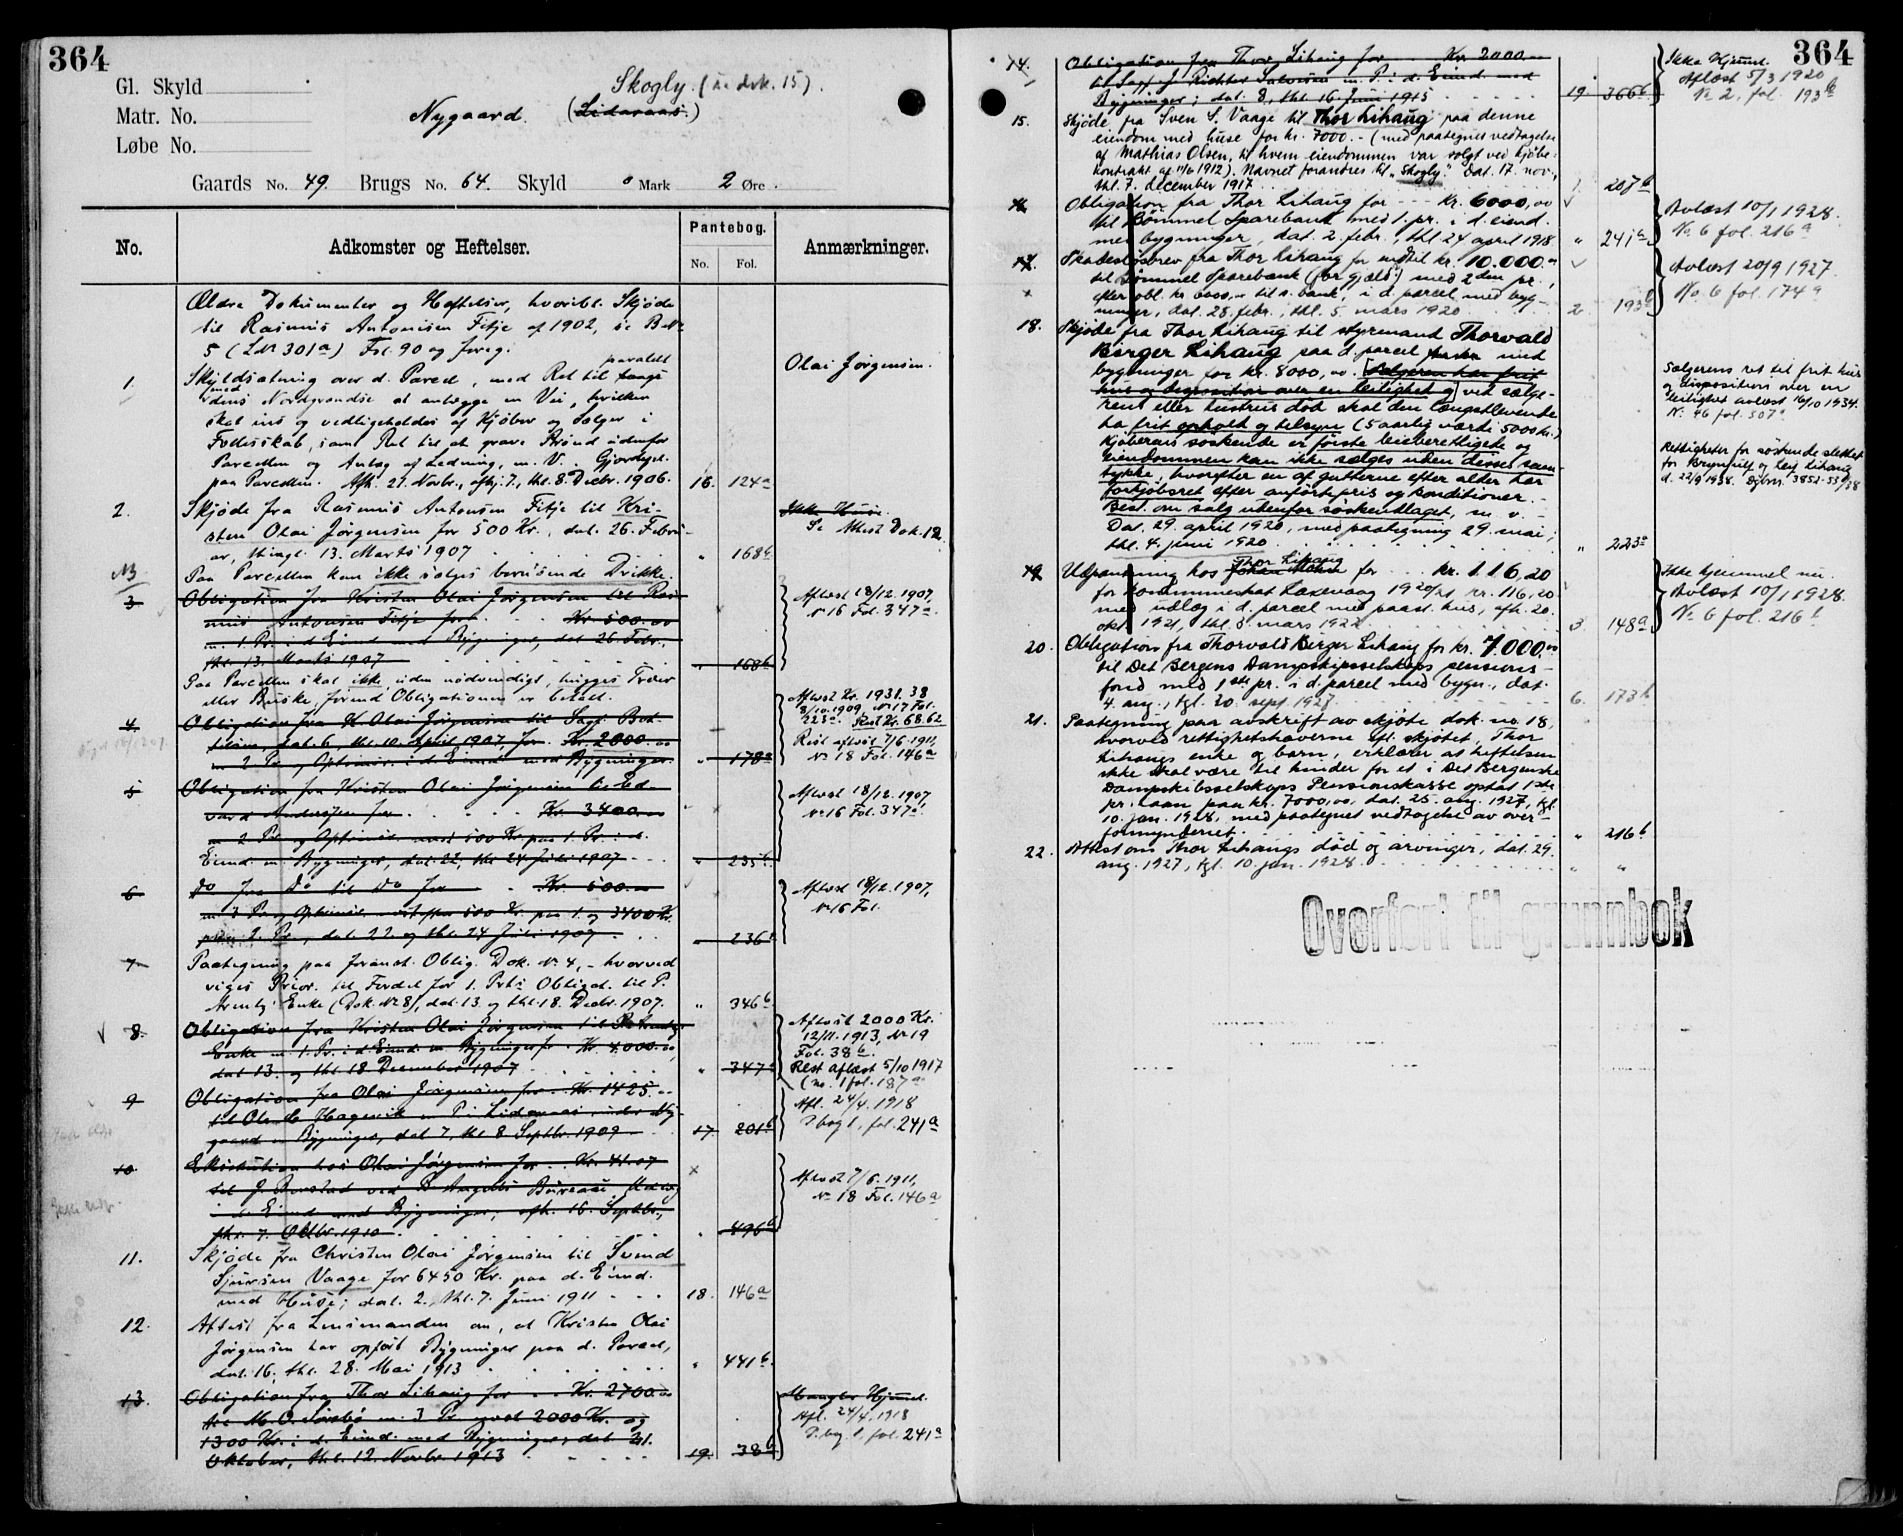 364
Gl. Skyld
Matr. No.
Løbe No.
Skogly. (se dok. 15).
Nygaard. (Lidaraas.)
Gaards No. 49. Brugs No. 64. Skyld 0 Mark 2 Øre.
No. Adkomster og Heftelser. Pantebog. No. Fol. Anmærkninger.
Ældre Dokumenter og Heftelser, hvoribl. Skjøde
til Rasmus Antonisen Fitje af 1902, se B.No
5 (LNr 301a) Fol. 90 og foreg.
1. Skyldsætning over d. Parcel, med Ret til parallelt Olai Jørgensen.
med dens Nordgrændse at anlægge en Vei, hvilken
skal ins og vedligeholdes af Kjøber og Sælger i
Fællesskab, samt Ret til at grave Brønd udenfor
Parcellen og Anlæg af Ledning, m. V. Gjerdepl.
paa Parcellen. Afh. 21. Novbr., afhj. 7., thl. 8. Decbr. 1906. 16. 124a
2. Skjøde fra Rasmus Antonsen Fitje til Kri-
sten Olai Jørgensen for 500 Kr., dat. 26. Febru-
ar, thingl. 13. Marts 1907 " 168b
Ikke Huse.
Se Attest Dok. 12.
NB Paa Parcellen kan ikke sælges berusende Drikke.
3 Obligation fra Kristen Olai Jørgensen til Ras-
mus Antonsen Fitje for Kr. 500.00
m. 1. Pr. i d. Eiend. med Bygninger, dat. 26. Febr.,
thl. 13. Marts 1907 " 168b
Aflæst 18/12.1907,
No 16 Fol. 347a.
Paa Parcellen skal ikke uden nødvendigt, hugges Træer
eller Buske, førend Obligationen er betalt.
4 Obligation fra K. Olai Jørgensen til Sagf. Bot-
dat. 6, thl. 10. April 1907, for Kr. 2000.00
m. 2 Pr. og Optrinsr. i d. Eiend. med Bygninger. " 178a
Aflæst Kr. 1931.38
8/10.1909, No 17 Fol.
223a. Rest Kr. 68.62
Rest aflæst 7/6.1911,
No 18 Fol. 146a
5 Obligation fra Kristen Olai Jørgensen til Ed-
vard Andersen for Kr. 3400.00
m. 2 Pr. og Optrinsr. med 500 Kr. paa 1. Pr. i d.
Eiend. m. Bygninger, dat. 22, thl. 24 Juli 1907 " 235b
Aflæst 18/12.1907,
No 16 Fol. 347a.
6 do fra do til do for Kr. 500.00
m 3 Pr. og Optrinsr. efter 500 Kr. paa 1. og 3400 Kr.
paa 2. Pr., dat. 22. og thl. 24 Juli 1907 " 236a
Aflæst 18/12.1907,
No 16 Fol.
7 Paategning paa foranst. Oblig. Dok. No 4, - hvorved
viges Prior. til Fordel for 1. Prts Obligat. til P.
Enke (Dok. No 8), dat. 13. og thl. 18. Decbr. 1907. " 346b
8. Obligation fra Kristen Olai Jørgensen til P.
Enke m 1. Pr. i d. Eiend. m. Bygninger for Kr. 4000.00,
dat. 13. og thl. 18 December 1907 " 347a
Aflæst 2000 Kr.
12/11.1913, No 19
Fol. 38b.
Rest aflæst 5/10 1917
(no. 1 fol. 187a
9 Obligation fra Olai Jørgensen for Kr. 1425.00
til Ole de Hagevik m Pr. i Lidaraas under Ny-
gaard m Bygninger, dat. 7, thl 8 Septbr. 1909 17. 201b
Afl. 24/4.1918
P.bog 1, fol. 241a
10 Eksekution hos Olai Jørgensen for Kr. 41.07
til J. Borstad ved Bureau. Udlæg
i d. Eiend. med Bygninger; afh. 16. Septbr.,
thl. 7. Oktbr. 1910 " 496b
Aflæst 7/6.1911,
No 18 Fol. 146a
11. Skjøde fra Christen Olai Jørgensen til Svend
Sjursen Vaage for 6450 Kr. paa d. Eiend.
med Huse; dat. 2., thl. 7. Juni 1911 18. 146a
12. Attest fra Lensmanden om, at Kristen Olai
Jørgensen har opført Bygninger paa d. Parcel,
dat. 16, thl. 28. Mai 1913 " 441b.
13. Obligation fra Thor Lihaug for Kr. 2700.00
til M. O. Sørebø m. 3 Pr. med 2000 Kr. og
1300 Kr. i d. Eiend. med Bygninger, dat. 21.
Oktober, thl. 12. Novbr. 1913 19. 38b
Mangler Hjemmel.
Afl. 24/4.1918
P.bog 1. fol. 241a
364
14. Obligation fra Thor Lihaug for Kr. 2000.00
til Sagf. J. Richter Salvesen m. P. i d. Eiend. med
Bygninger; dat. 8, thl. 16. Juni 1915 19 366b
Ikke Hjemmel.
Aflæst 5/3 1920
No 2, fol. 193b
15. Skjøde fra Sven S. Vaage til Thor Lihaug paa denne
eiendom med huse for kr. 7000.- (med paategnet vedtagelse
af Mathias Olsen, til hvem eiendommen var solgt ved kjøbe-
kontrakt af 11/6 1912). Navnet forandres til „Skogly". Dat. 17. nov.,
thl. 7. december 1917. 1. 207b
16. Obligation fra Thor Lihaug for kr. 6000,00
til Bømmel Sparebank med 1. pr. i d. eiend.
med bygninger, dat. 2. febr., thl 24 april 1918 " 241a
Avlæst 10/1 1928.
No 6 fol. 216a
17. Skadesløsbrev fra Thor Lihaug for indtil kr. 10.000.00
til Bømmel Sparebank (for gjæld) med 2den pr.,
efter obl. kr 6000,00 til s. bank, i d. parcel med byg-
ninger, dat. 28. febr., thl. 5. mars 1920 2 193b
Avlæst 20/9 1927.
No 6 fol. 174a
18. Skjøde fra Thor Lihaug til styrmand Thorvald
Berger Lihaug paa d. parcel med
bygninger for kr. 8000,00. [Sælgeren har frit
hus og disposition over en leilighet og] ved sælge-
rens eller hustrus død skal den længstlevende
ha frit ophold og tilsyn (5 aarlig værdi 5000 kr.)
Kjøberens søskende er første leieberettigede og
Eiendommen kan ikke sælges uden disses sam-
tykke, hvorefter en af gutterne efter alder har
forkjøbsret efter anførte pris og konditioner. -
Best. om salg utenfor søskenflaget, m. v. -
Dat. 29. april 1920, med paategning 29. mai;
thl. 4. juni 1920 " 223a
Sælgerens ret til frit hus
og disposition over en
leilighet avlæst 16/10 1934.
No. 46 fol. 507a
Rettigheter for søskende slettet
for Brynjulf og Leif Lihaug
d. 22/9 1938. Dgbnr. 3852-53/38
19. Utpantning hos Johan Thor Lihaug for kr. 116,20
for kommuneskat Laxevaag 1920/21 kr. 116,20
med utlæg i d. parcel med paast. hus, afh. 20.
okt 1921, thl. 8 mars 1922 3 148a
Ikke hjemmel nu.
Avlæst 10/1 1928.
No 6 fol. 216b
20. Obligation fra Thorvald Berger Lihaug for kr. 7.000.00
til Det Bergens Dampskipsselskaps pensions-
fond med 1ste pr. i d. parcel med bygn., dat.
4. aug., tgl. 20. sept. 1927 6. 173b
21. Paategning paa avskrift av skjøte dok. no. 18,
hvorved rettighetshaverne efl. skjøtet, Thor
Lihaugs enke og barn, erklærer at heftelsen
ikke skal være til hinder for et i Det Bergenske
Dampskibsselskaps Pensionskasse optat 1ste
pr. laan paa kr. 7000,00, dat. 25. aug. 1927, tgl.
10. jan. 1928, med paategnet vedtagelse av over-
formynderiet. " 216b
22. Attest om Thor Lihaugs død og arvinger, dat. 29.
aug. 1927, tgl. 10. jan. 1928 " "
Overført til grunnbok